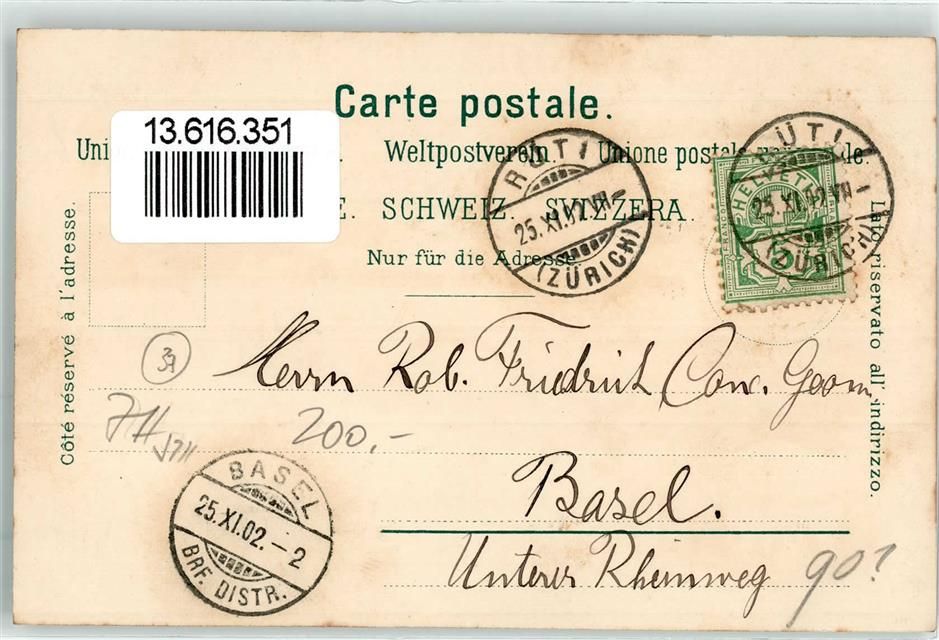 Carte postale.
13.616.351
Weltpostverein. Unione postale
SCHWEIZ. SVIZZERA.
Nur für die Adresse.
Côté réservé à l'adresse.
Lato riservato all' indirizzo.
RÜTI
25.XI.02.VII-
(ZÜRICH)
RÜTI
25.XI.02.VII-
(ZÜRICH)
FRANCO
HELVETIA
5
Herrn Rob. Friedrich, Conc. Geom,
37
200.-
Basel.
Unterer Rheinweg 90?
BASEL
25.XI.02.-2
BRF. DISTR.